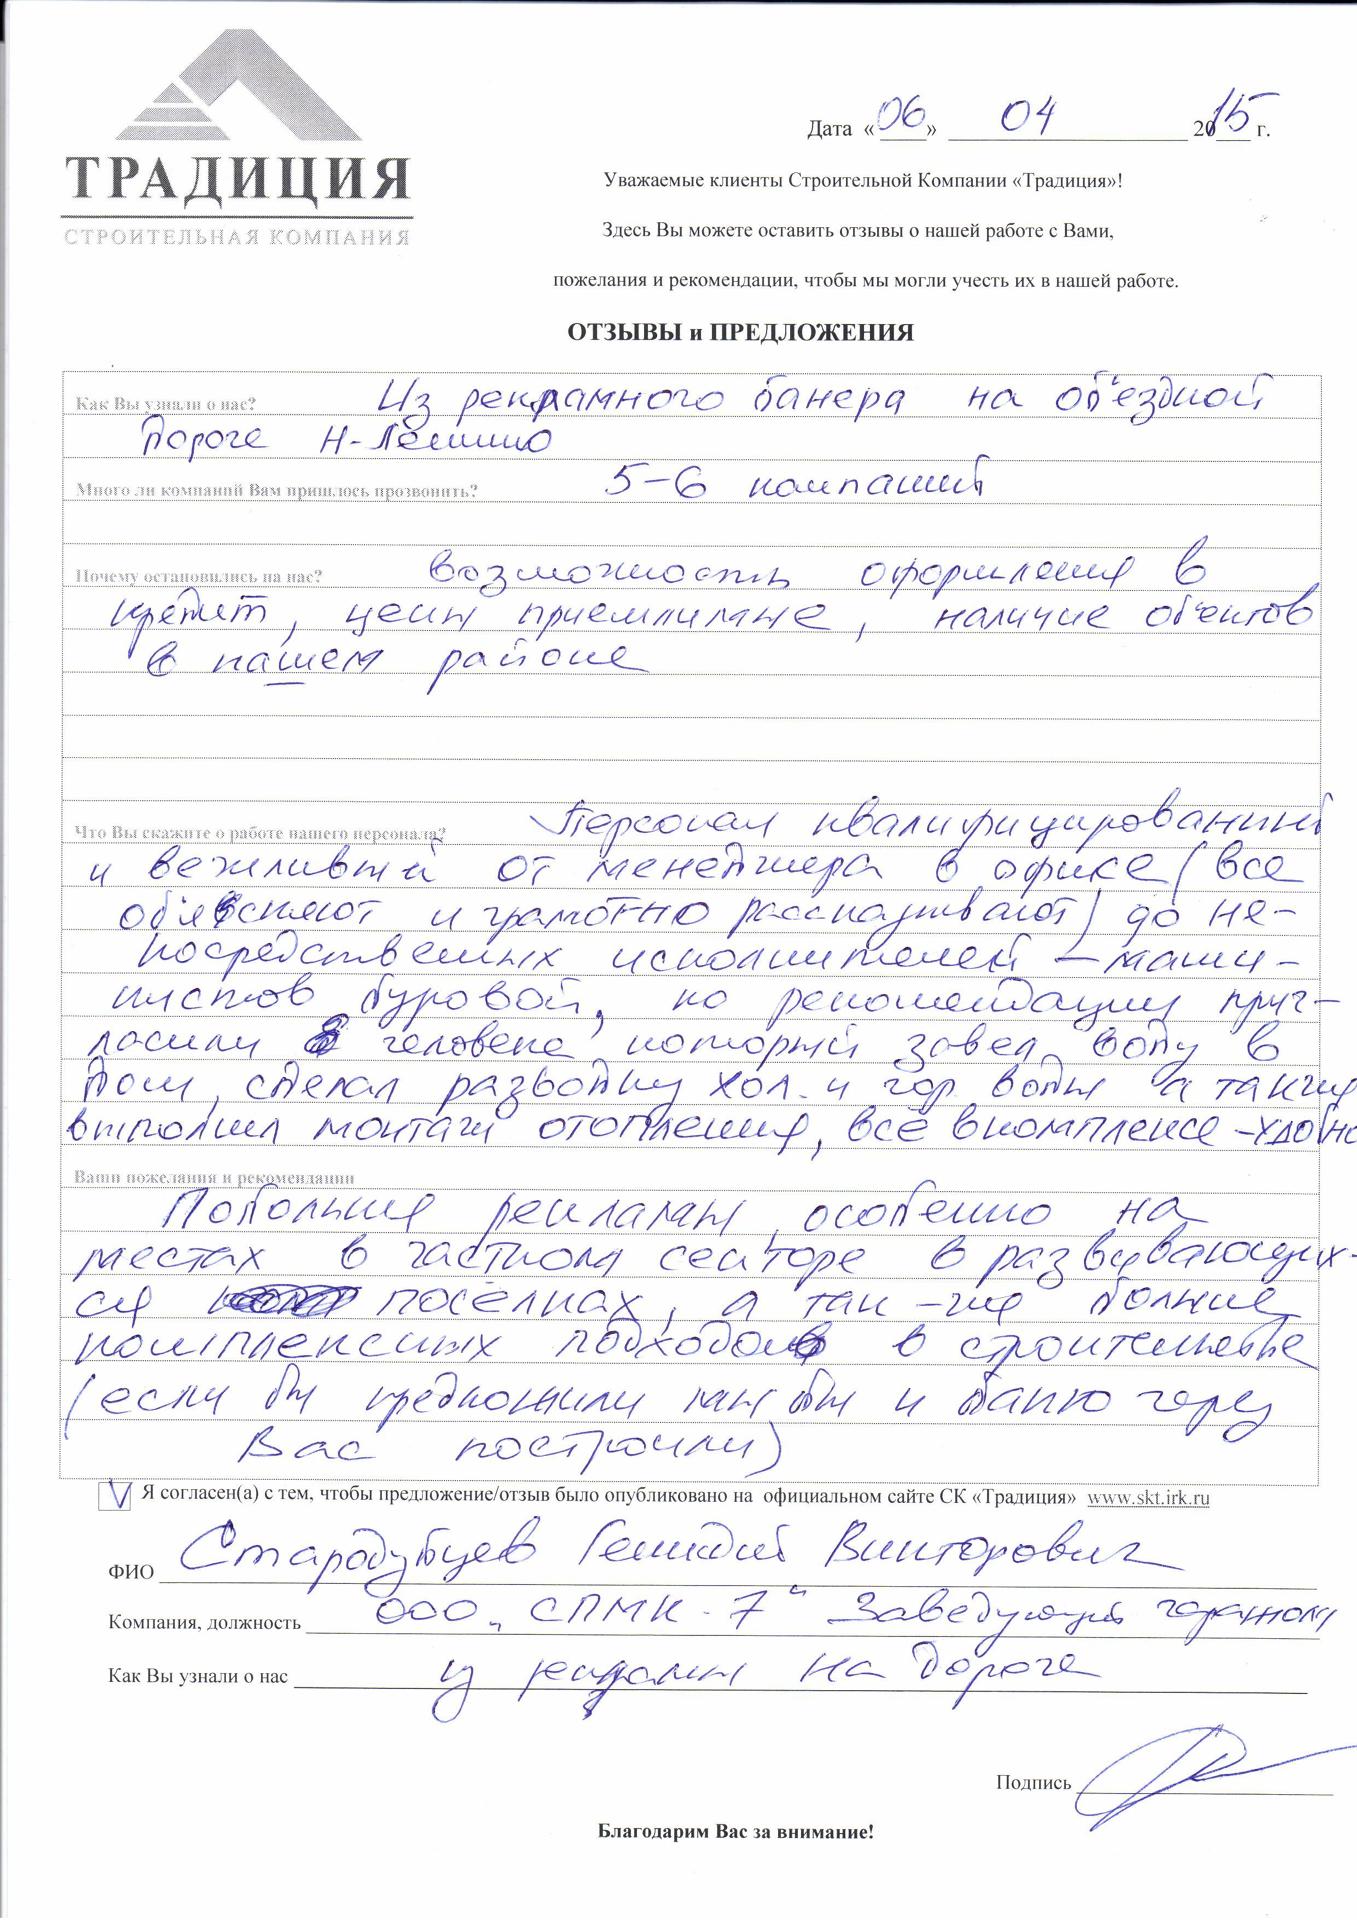 ТРАДИЦИЯ
СТРОИТЕЛЬНАЯ КОМПАНИЯ
Дата «06» 04 2015 г.
Уважаемые клиенты Строительной Компании «Традиция»!
Здесь Вы можете оставить отзывы о нашей работе с Вами,
пожелания и рекомендации, чтобы мы могли учесть их в нашей работе.
ОТЗЫВЫ и ПРЕДЛОЖЕНИЯ
Как Вы узнали о нас? Из рекламного банера на объездной
дороге Н-Ленино
Много ли компаний Вам пришлось прозвонить? 5-6 компаний
Почему остановились на нас? возможность оформления в
кредит, цены приемлимые, наличие объектов
в нашем районе
Что Вы скажите о работе нашего персонала? Персонал квалифицированный
и вежливый от менеджера в офисе (все
объясняют и грамотно рассказывают) до не-
посредственных исполнителей – маши-
нистов буровой, по рекомендации приг-
ласили человека который завел воду в
дом, сделал разводку хол. и гор воды а также
выполнил монтаж отопления, все в комплексе - удобно
Ваши пожелания и рекомендации
Побольше рекламы, особенно на
местах в частном секторе в развивающих-
ся посёлках, а так-же больше
комплексных подходов в строительстве
(если бы предложили мы бы и баню через
Вас построили)
V Я согласен(а) с тем, чтобы предложение/отзыв было опубликовано на официальном сайте СК «Традиция» www.skt.irk.ru
ФИО Стародубцев Геннадий Викторович
Компания, должность ООО „СПМК-7“ Заведующий гаражом
Как Вы узнали о нас из рекламы на дороге
Подпись
Благодарим Вас за внимание!